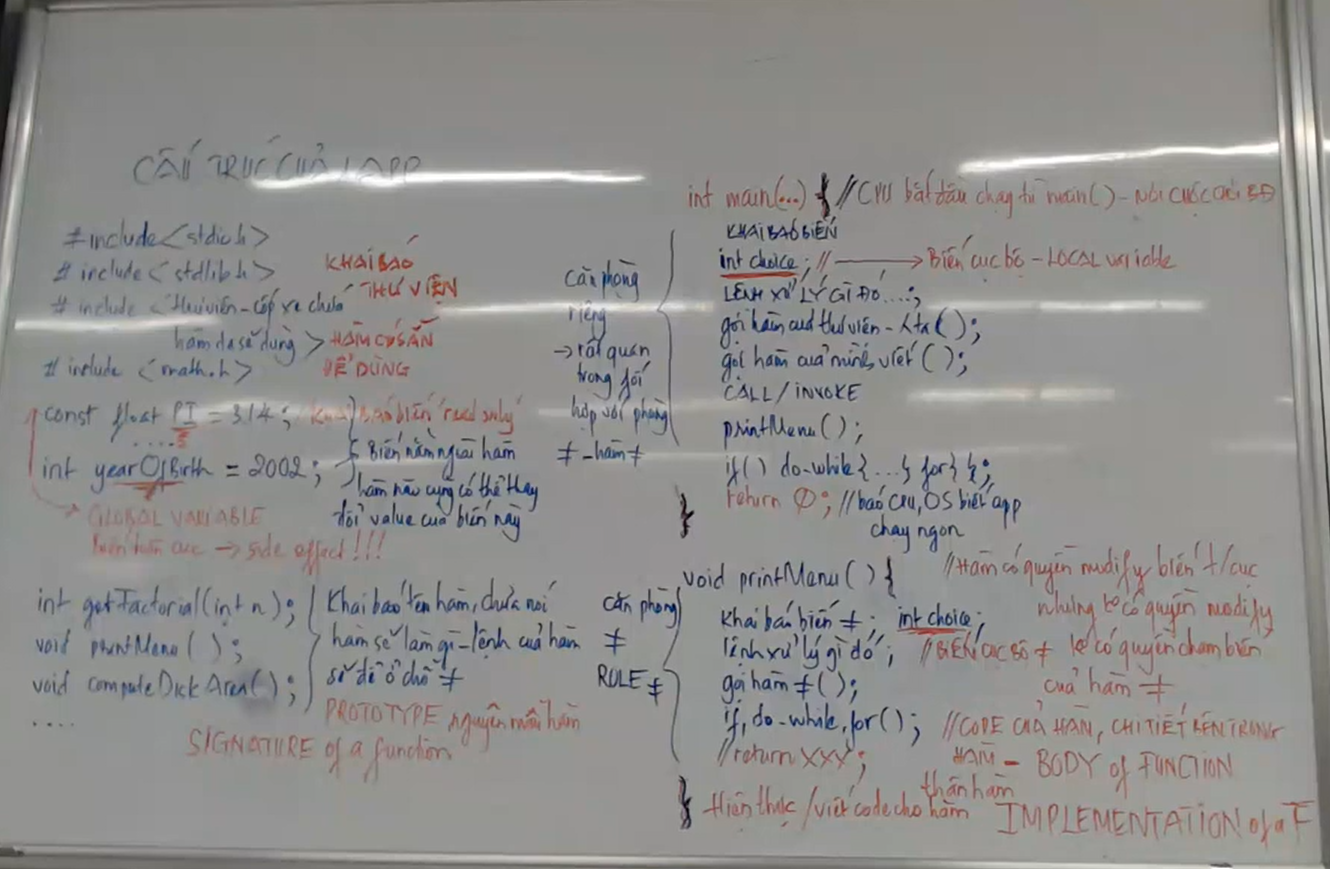 CẤU TRÚC CỦA 1 APP
#include <stdio.h>
# include <stdlib.h>
# include <thư viện - cốp xe chứa
hàm da sẽ dùng >
# include <math.h>
KHAI BÁO
THƯ VIỆN
HÀM CÓ SẴN
ĐỂ DÙNG
const float PI = 3.14; // khai báo biến "read only"
.....
int yearOfBirth = 2002;
Biến nằm ngoài hàm
hàm nào cũng có thể thay
đổi value của biến này
GLOBAL VARIABLE
Biến toàn cục → side effect!!!
int getFactorial(int n);
void printMenu ( );
void computeDickArea( );
....
Khai báo tên hàm, chưa nói
hàm sẽ làm gì - lệnh của hàm
sẽ để ở chỗ ≠
PROTOTYPE nguyên mẫu hàm
SIGNATURE of a function
căn phòng
riêng
→ rất quan
trọng fối
hợp với phòng
≠ - hàm ≠
int main(...) { // CPU bắt đầu chạy từ main() -
KHAI BÁO BIẾN
int choice; // → Biến cục bộ - LOCAL variable
LỆNH XỬ LÝ GÌ ĐÓ ...;
gọi hàm của thư viện - ( );
gọi hàm của mình viết ( );
CALL / INVOKE
printMenu ( );
if( ) do-while{...} for{ };
return 0; // báo CPU, OS biết app
chạy ngon
}
căn phòng
≠
RULE ≠
void printMenu ( ) {
khai báo biến ≠; int choice;
lệnh xử lý gì đó; // BIẾN CỤC BỘ ≠
gọi hàm ≠( );
if, do-while, for( );
// return XXX;
}
// Hàm có quyền modify biến t/cục
nhưng ko có quyền modify
ko có quyền chạm biến
của hàm ≠
// CODE CỦA HÀM, CHI TIẾT BÊN TRONG
HÀM - BODY of FUNCTION
thân hàm
Hiện thực / viết code cho hàm
IMPLEMENTATION of a F